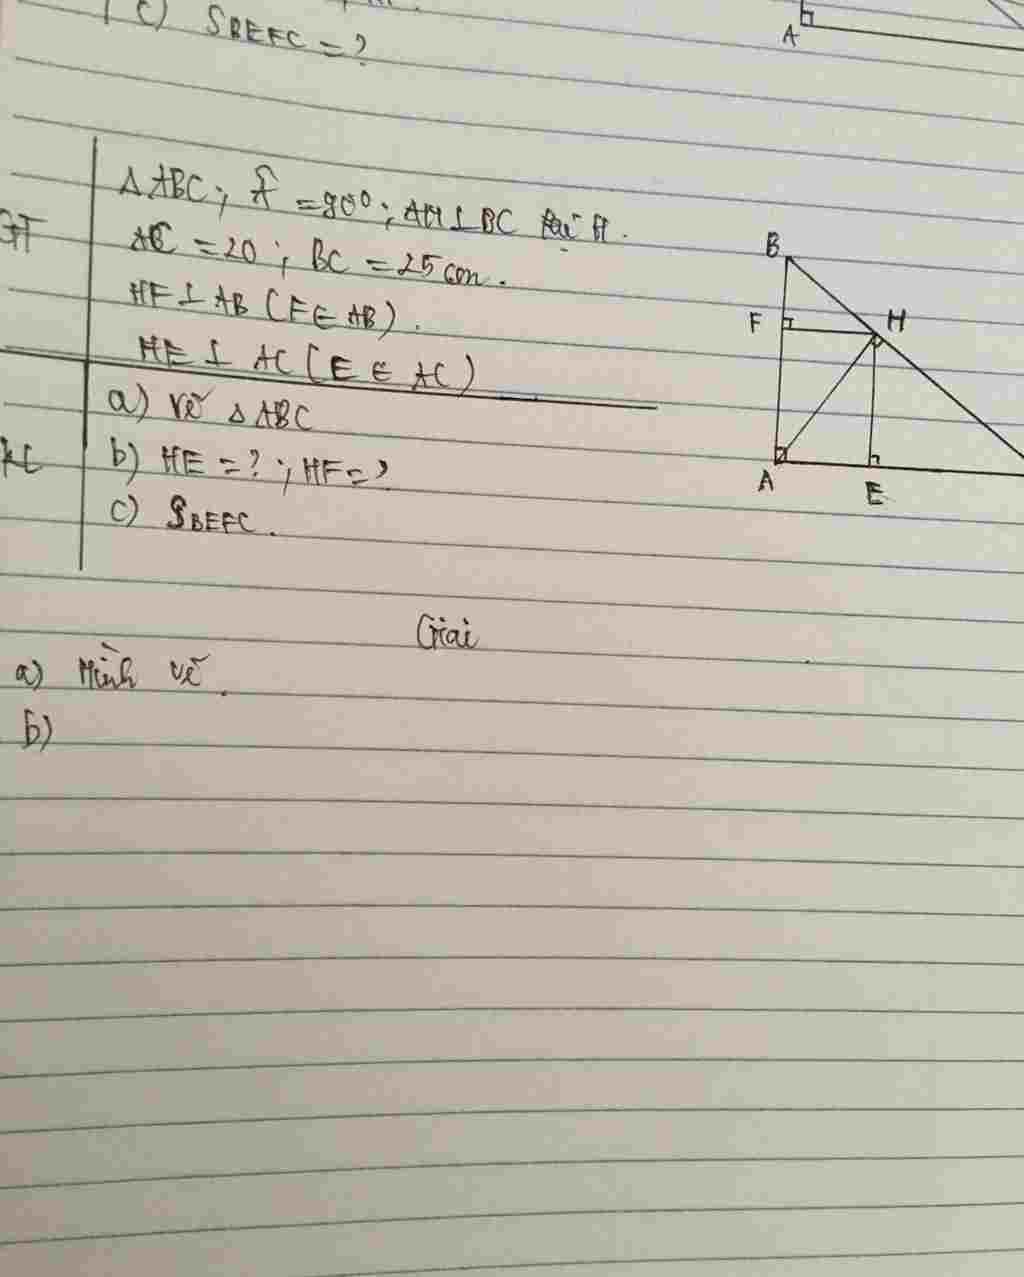 c) SBEFC = ?
A
Δ ABC; Â = 90°; AH ⊥ BC tại H.
GT
AC = 20; BC = 25 cm.
HF ⊥ AB (F ∈ AB).
HE ⊥ AC (E ∈ AC)
a) Vẽ Δ ABC
KL
b) HE = ?; HF = ?
c) SBEFC.
B
F
H
A
E
Giải
a) Hình vẽ.
b)